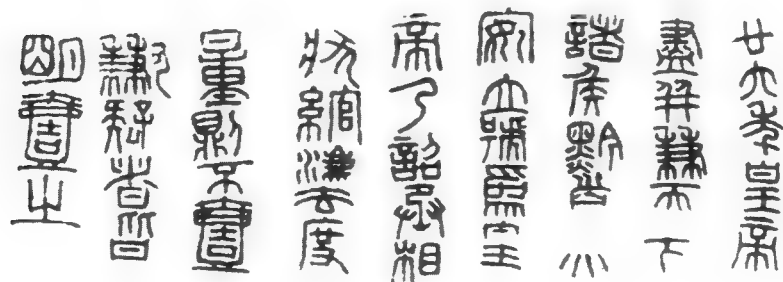 廿六年皇帝
盡并兼天下
諸侯黔首大
安立號為皇
帝乃詔丞相
狀綰灋度
量則不壹
歉疑者皆
明壹之